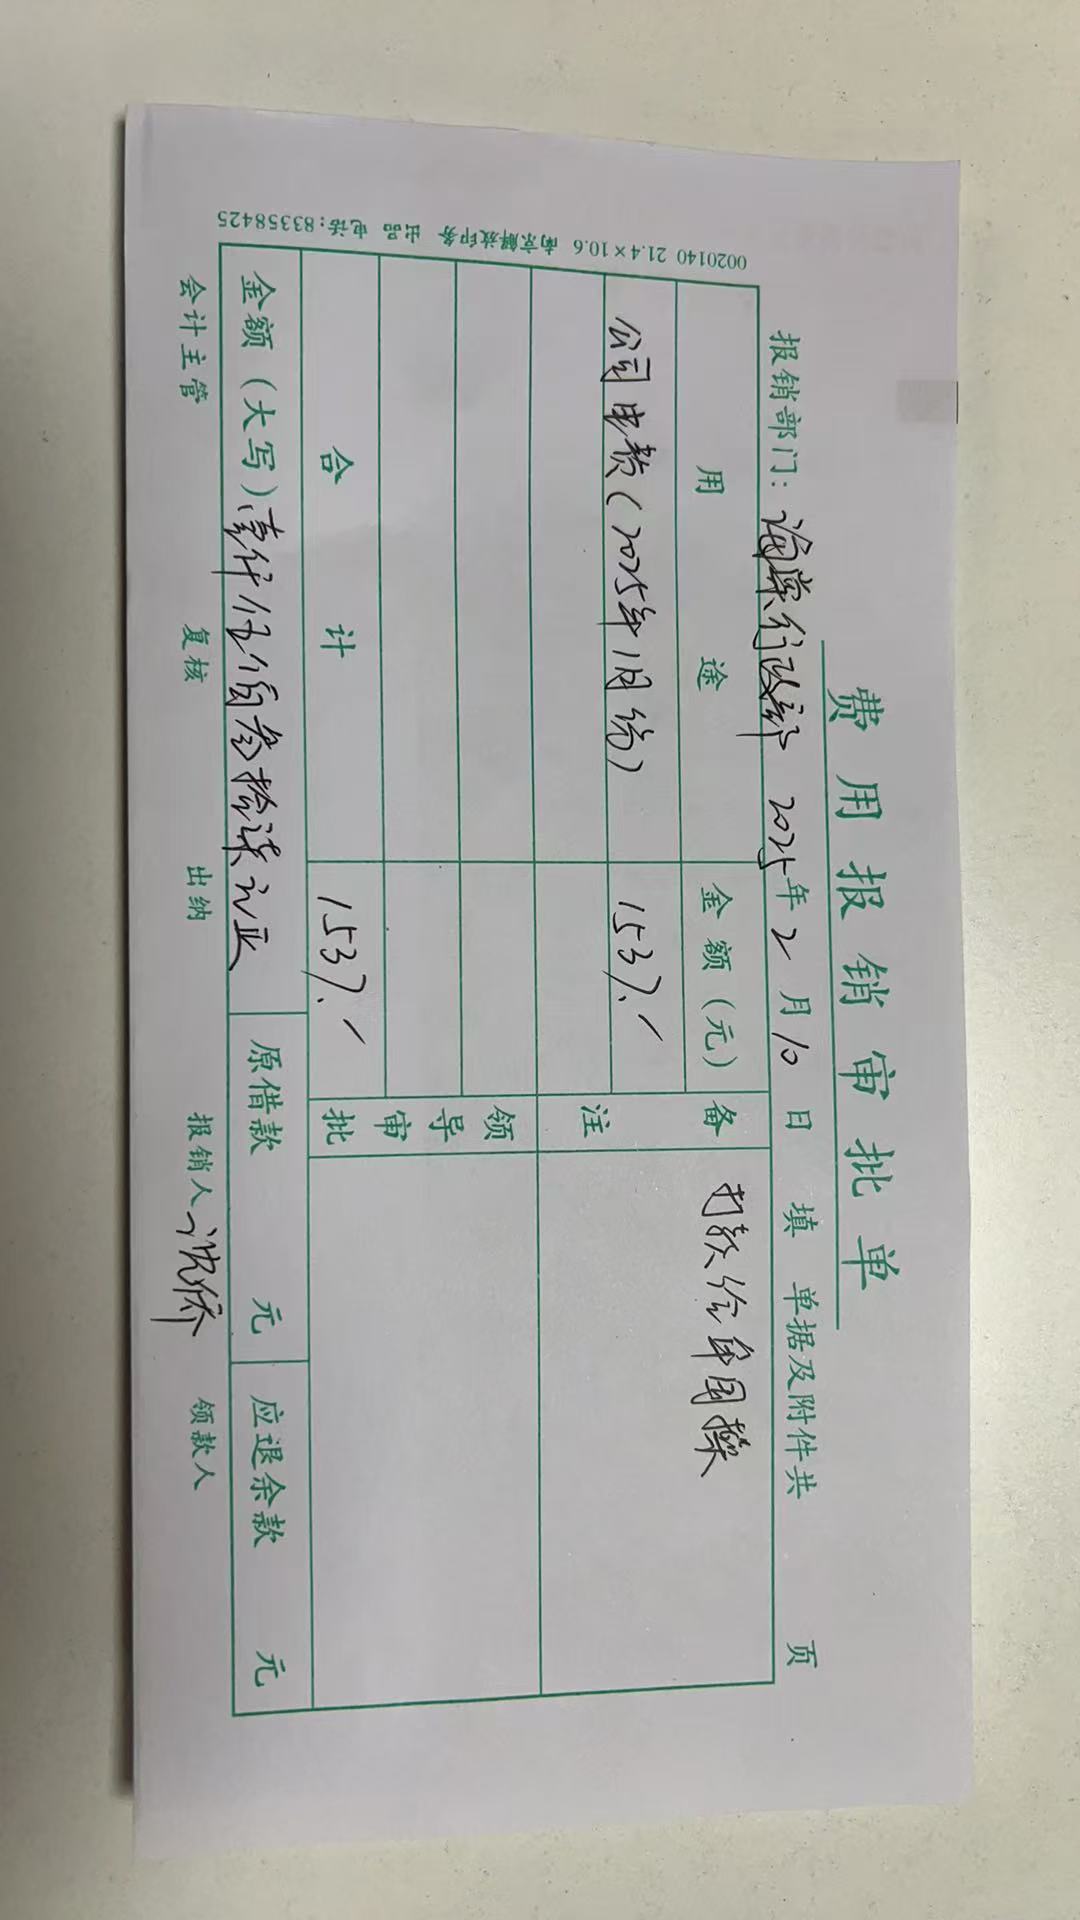 费用报销审批单
报销部门：海棠行政部 2025年2月10日 填 单据及附件共 页
用途 金额（元） 备注 打款给单国
公司电费（2025年1月份） 1537.-
合计 1537.- 领导审批
金额（大写）壹仟伍佰叁拾柒元正 原借款 元 应退余款 元
会计主管 复核 出纳 报销人 沈侨 领款人
0020140 21.4×10.6 南京解放印务 出品 电话:83358425